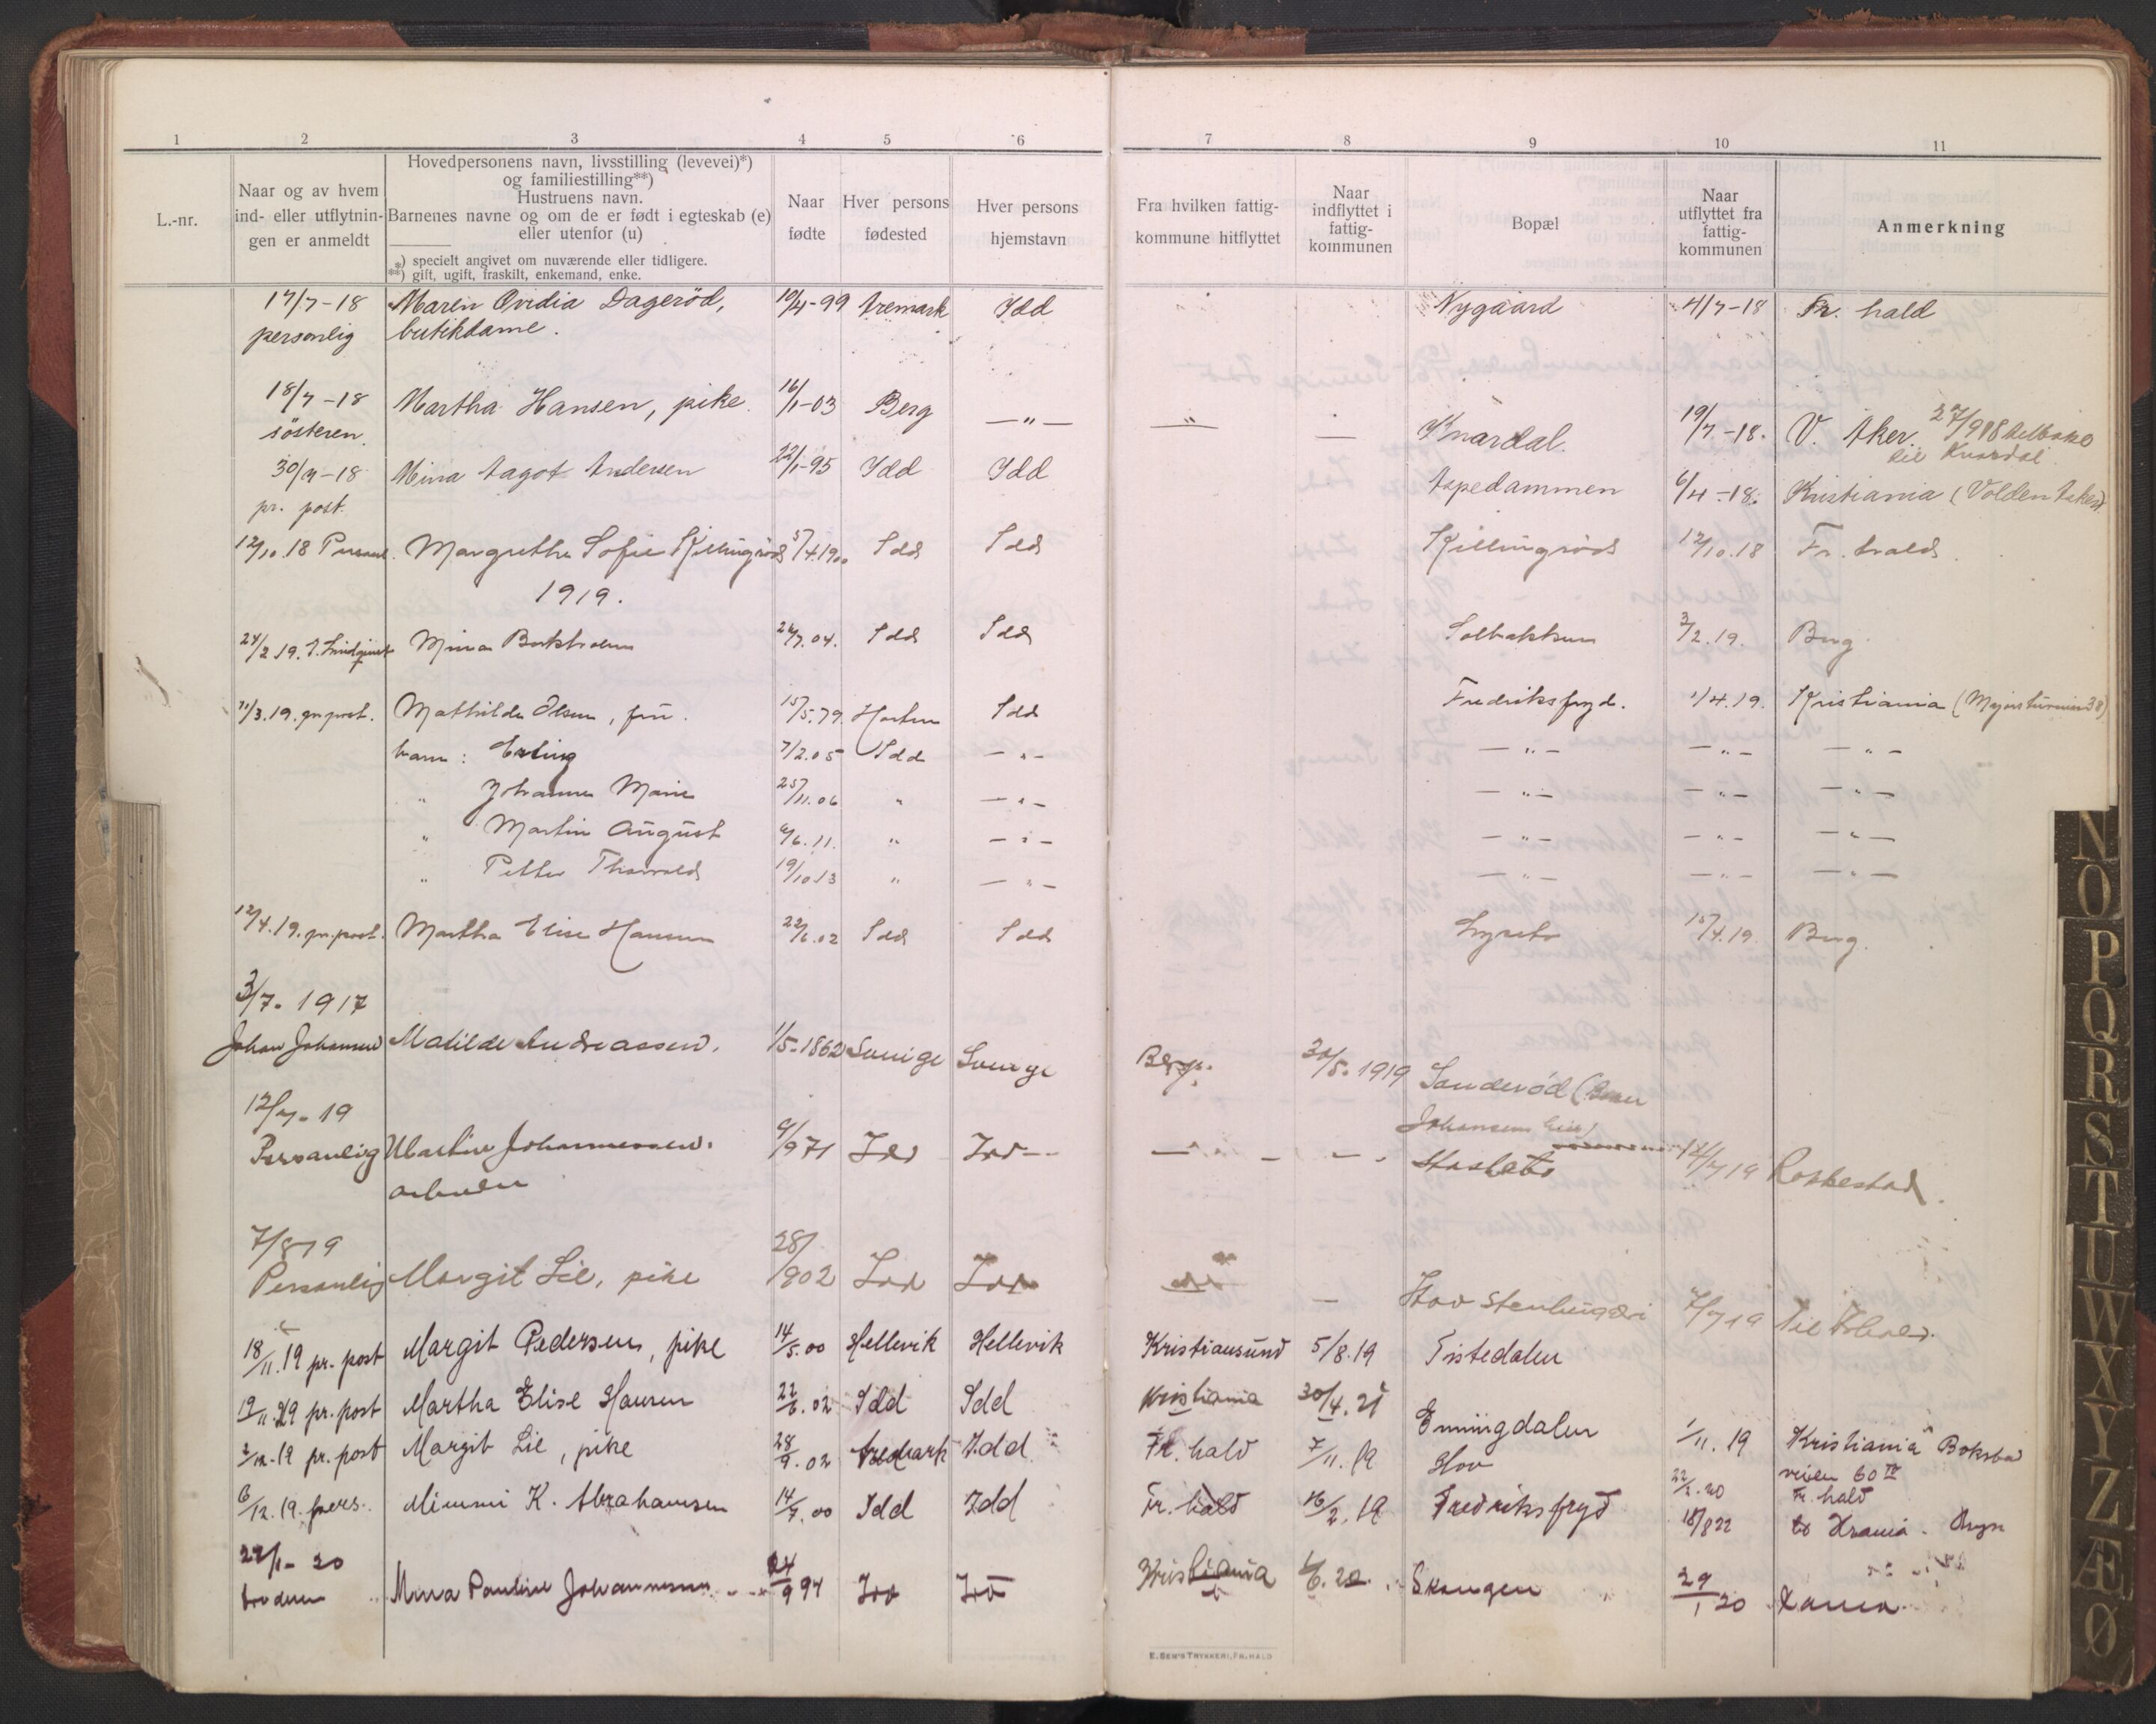 1 2 3 4 5 6 7 8 9 10 11
L.-nr.
Naar og av hvem
ind- eller utflytnin-
gen er anmeldt
Hovedpersonens navn, livsstilling (levevei)*)
og familiestilling**)
Hustruens navn.
Barnenes navne og om de er født i egteskab (e)
eller utenfor (u)
*) specielt angivet om nuværende eller tidligere.
**) gift, ugift, fraskilt, enkemand, enke.
Naar
fødte
Hver persons
fødested
Hver persons
hjemstavn
Fra hvilken fattig-
kommune hitflyttet
Naar
indflyttet i
fattig-
kommunen
Bopæl
Naar
utflyttet fra
fattig-
kommunen
Anmerkning
17/7-18 Maren Ovidia Dagerød, 19/4-99 Aremark Idd Nygaard 4/7-18 Fr. hald
personlig butikdame.
18/7-18 Martha Hansen, pike. 16/1-03 Berg —"— —"— — Knardal. 19/7-18. V. Aker. 27/918 tilbake
søsteren. til Knardal
30/9-18 Mina Aagot Andersen 22/1-95 Idd Idd Aspedammen 6/4-18. Kristiania (Volden Aker).
pr. post.
12/10.18 Personl. Margrethe Sofie Killingrød 5/4.1900 Idd Idd Killingrød 12/10.18 Fr. hald.
1919.
24/2.19. J. Lindquist Mina 24/7.04. Idd Idd Solbakken 3/2.19. Berg
11/3.19. pr. post. Mathilde Olsen, fru. 15/5.79. Horten Idd Fredriksfryd. 1/4.19. Kristiania
barn: Erling 7/2.05 Idd —"— —"— —"— —"—
" Johanne Marie 25/11.06 " —"— —"— —"— —"—
" Martin August 9/6.11. " —"— —"— —"— —"—
" Petter Thorvald 19/10.13 " —"— —"— —"— —"—
12/4.19. pr. post. Martha Elise Hansen 22/6.02 Idd Idd 15/4.19. Berg.
3/7. 1917
Johan Johansen Matilde Andreassen. 1/5-1862 Sverige Sverige Berg. 30/5.1919 Sanderød
Johansens
12/7-19
Personlig Martin Johannessen. 9/971 Idd Idd — — 12/719
arbeider
7/819
Personlig Margit Lie, pike 28/902 Idd Idd — Hov 7/719
18/11.19 pr. post Margit Pedersen, pike 14/5.00 Hellevik Hellevik Kristiansund 5/8.19 Tistedalen
19/11.19 pr. post Martha Elise Hansen 22/6.02 Idd Idd Kristiania 30/4.21 Enningdalen 1/11.19 Kristiania
2/12.19 pr. post Margit Lie, pike 28/9.02 Aremark Idd Fr. hald 7/11.19 Hov 22/2.20 Fr. hald
6/12.19. pers. Mimmi K. Abrahamsen 14/7.00 Idd Idd Fr. hald 16/2.19 Fredriksfryd 18/822 Krania. Bryn
22/1-20
broderen Mina Pauline Johannesen 24/9 94 Idd Idd Kristiania Skangen 29/1 20 Xania
E. SEM'S TRYKKERI, FR.HALD
N
O
P
Q
R
S
T
U
W
X
Y
Z
Æ
Ø